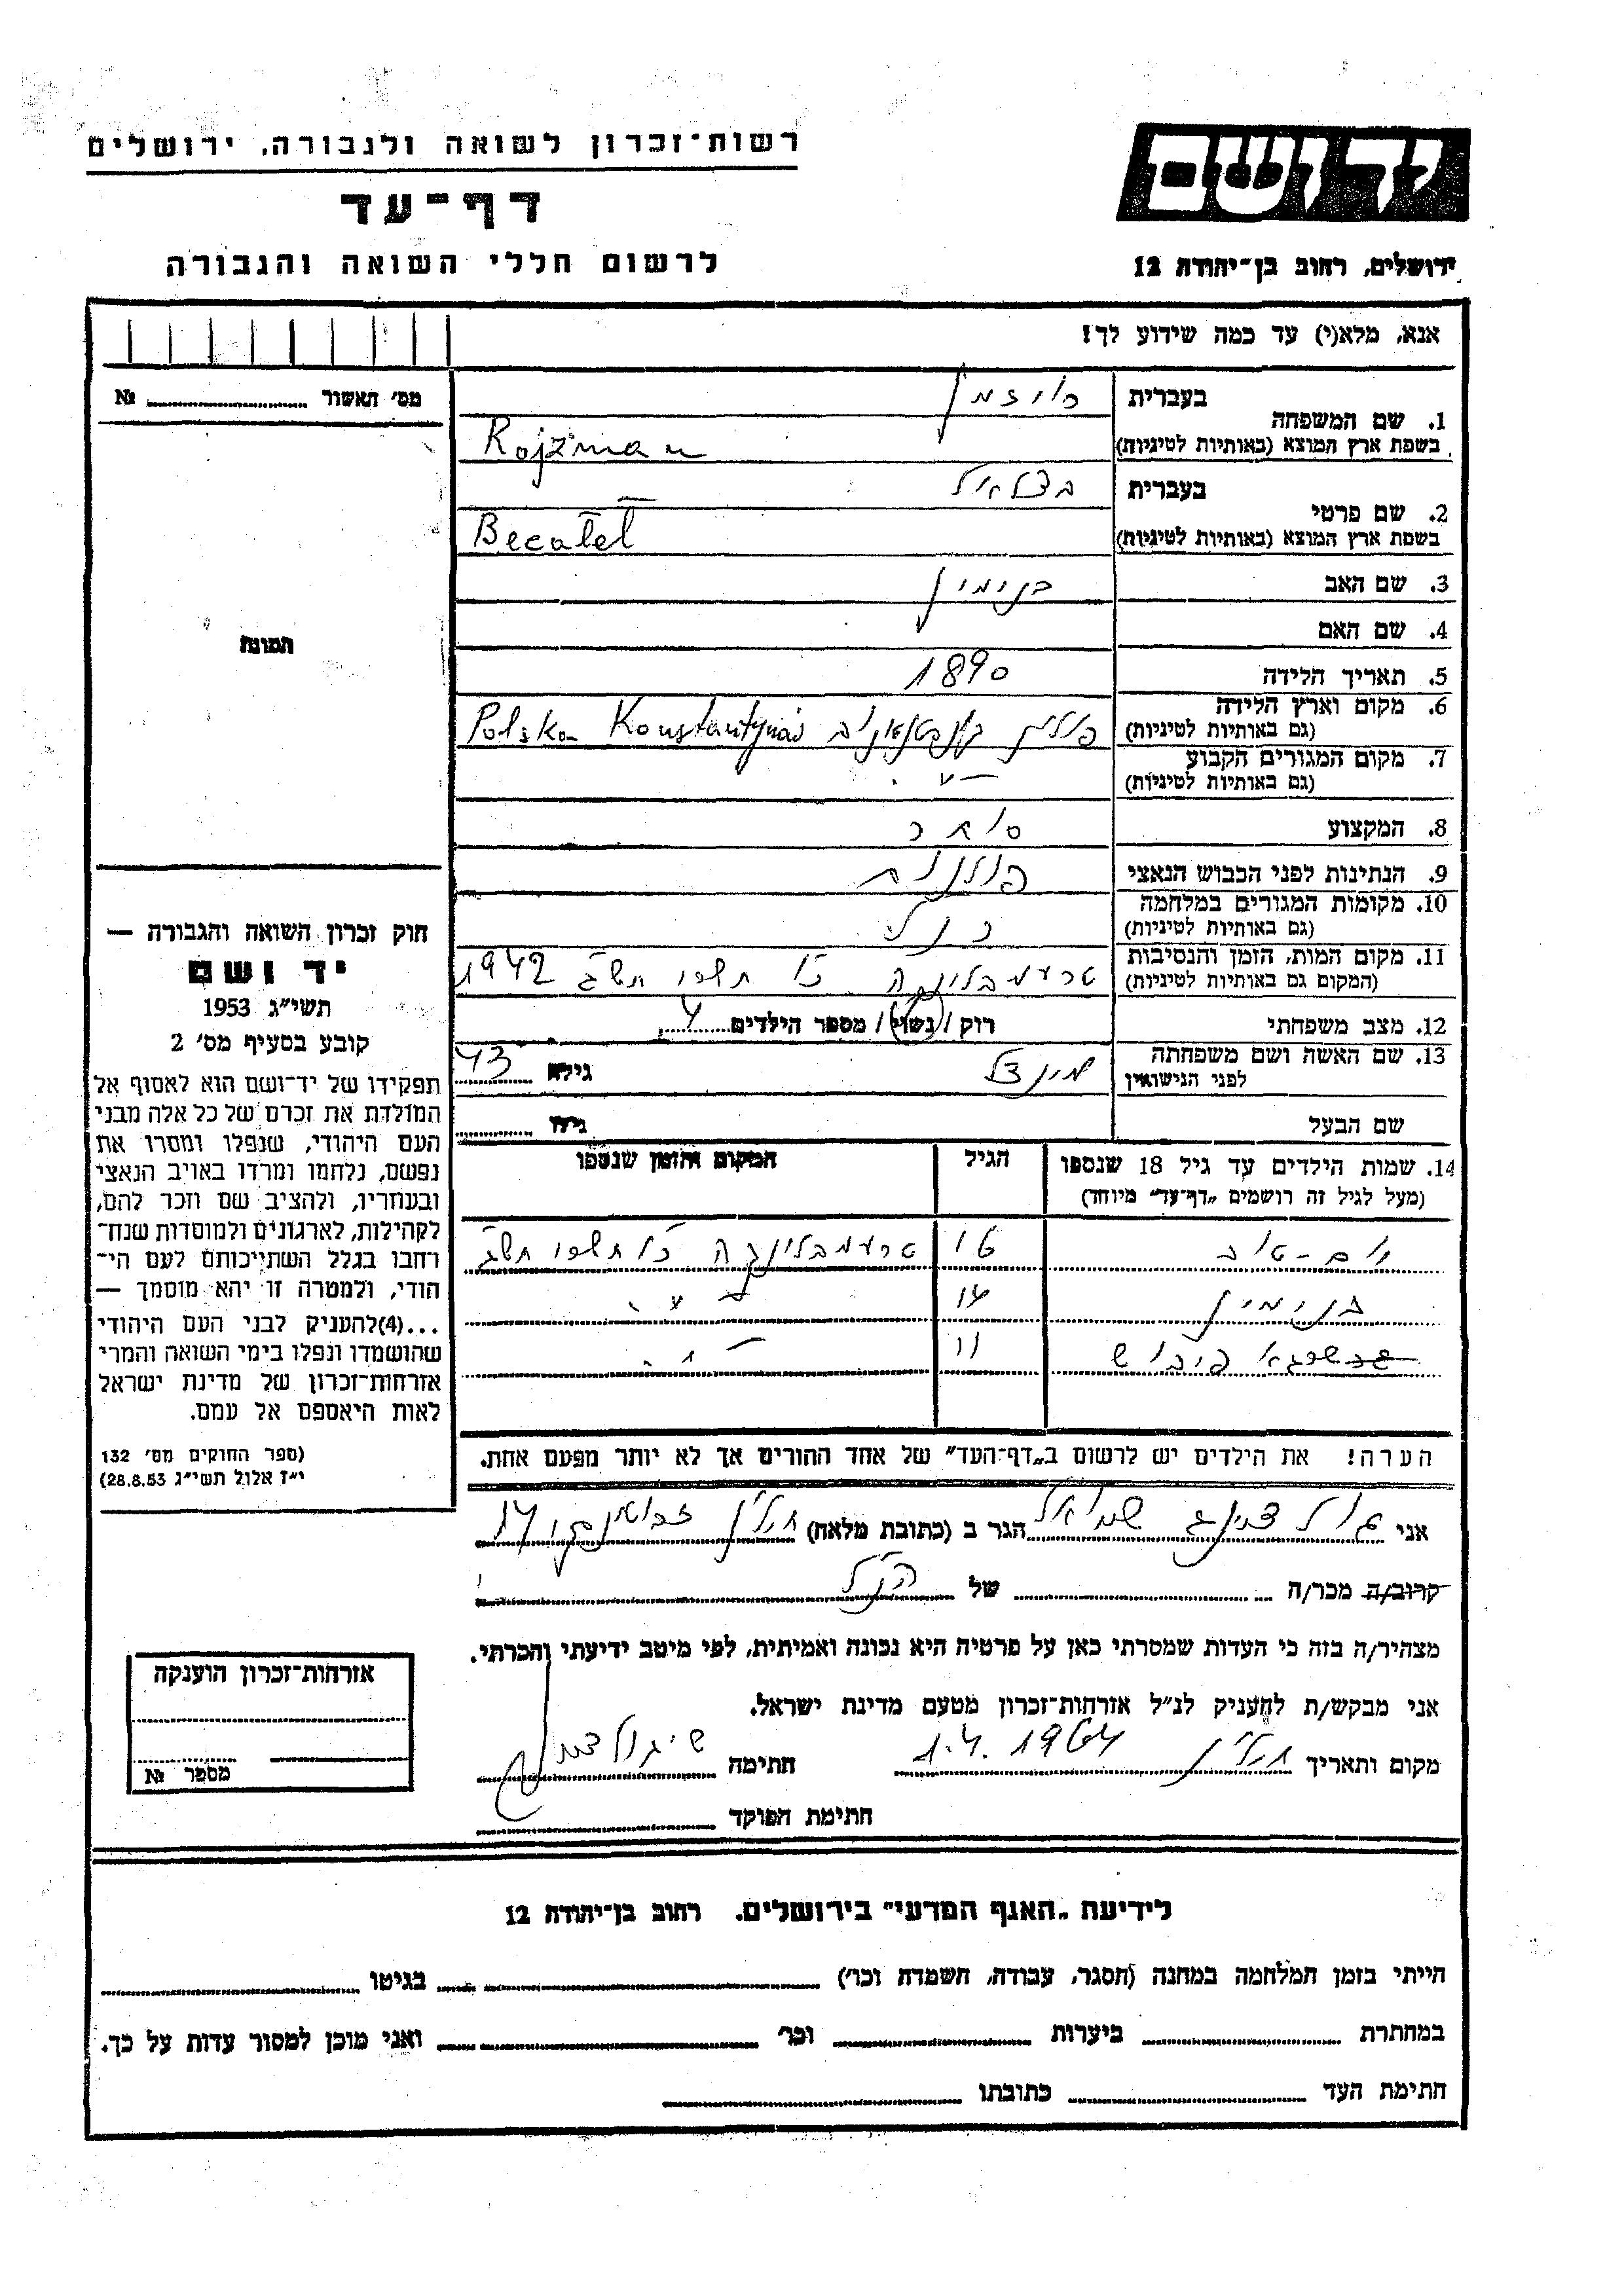 רשות־זכרון לשואה ולגבורה, ירושלים
דף־עד
לרשום חללי השואה והגבורה
יד ושם
ירושלים, רחוב בן־יהודה 12
אנא, מלא(י) עד כמה שידוע לך!
מס' האשור № 
1. שם המשפחה
בעברית רויזמן
בשפת ארץ המוצא (באותיות לטיניות) Rojzman
2. שם פרטי
בעברית בצלאל
בשפת ארץ המוצא (באותיות לטיניות) Becalel
3. שם האב בנימין
4. שם האם
5. תאריך הלידה 1890
6. מקום וארץ הלידה פולין
(גם באותיות לטיניות) Polska Konstantynów
7. מקום המגורים הקבוע
(גם באותיות לטיניות)
8. המקצוע סוחר
9. הנתינות לפני הכבוש הנאצי פולנית
10. מקומות המגורים במלחמה כנ"ל
(גם באותיות לטיניות)
11. מקום המות, הזמן והנסיבות
(המקום גם באותיות לטיניות) טרעמבלינקה תשרי תש"ג 1942
12. מצב משפחתי רוק / נשוי / מספר הילדים 4
13. שם האשה ושם משפחתה
לפני הנישואין גילה 43
שם הבעל גילו
14. שמות הילדים עד גיל 18 שנספו
(מעל לגיל זה רושמים „דף־עד" מיוחד)
הגיל המקום והזמן שנספו
יום-טוב 16 טרעמבלינקה תשרי תש"ג
בנימין 14
פייבוש 11
הערה! את הילדים יש לרשום ב„דף־העד" של אחד ההורים אך לא יותר מפעם אחת.
אני גולדצווייג שמואל הגר ב (כתובת מלאה) חולון 14
קרוב/ה מכר/ה של הנ"ל
מצהיר/ה בזה כי העדות שמסרתי כאן על פרטיה היא נכונה ואמיתית, לפי מיטב ידיעתי והכרתי.
אני מבקש/ת להעניק לנ"ל אזרחות־זכרון מטעם מדינת ישראל.
מקום ותאריך חולון 1.4.1964 חתימה
חתימת הפוקד
תמונה
חוק זכרון השואה והגבורה —
יד ושם
תשי"ג 1953
קובע בסעיף מס' 2
תפקידו של יד־ושם הוא לאסוף אל
המולדת את זכרם של כל אלה מבני
העם היהודי, שנפלו ומסרו את
נפשם, נלחמו ומרדו באויב הנאצי
ובעוזריו, ולהציב שם וזכר להם,
לקהילות, לארגונים ולמוסדות שנח־
רחבו בגלל השתייכותם לעם הי־
הודי, ולמטרה זו יהא מוסמך —
...(4)להעניק לבני העם היהודי
שהושמדו ונפלו בימי השואה והמרי
אזרחות־זכרון של מדינת ישראל
לאות היאספם אל עמם.
(ספר החוקים מס' 132
י"ז אלול תשי"ג 28.8.53)
אזרחות־זכרון הוענקה
מספר №
לידיעת „האגף המדעי" בירושלים. רחוב בן־יהודה 12
הייתי בזמן המלחמה במחנה (הסגר, עבודה, השמדה וכו') בגיטו
במחתרת ביערות וכו' ואני מוכן למסור עדות על כך.
חתימת העד כתובתו